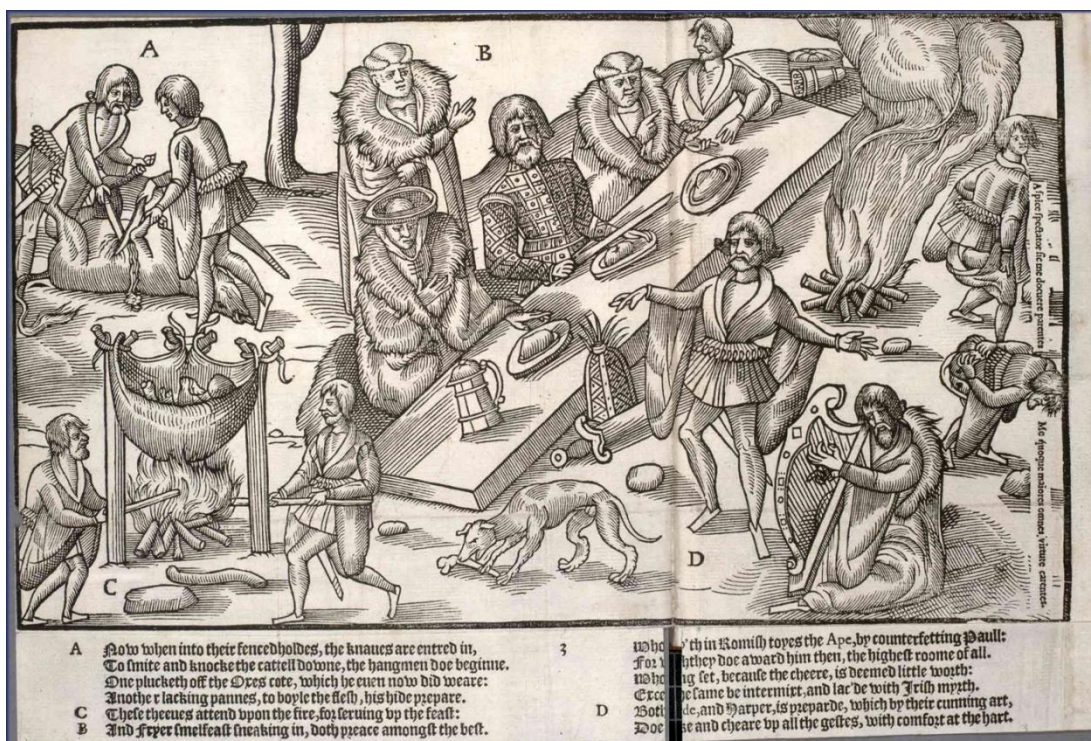 A
B
C
D
A spice spectator sic me docuere parentes
Me quoque maiores omnes, virtute carentes.
A Now when into their fencedholdes, the knaues are entred in,
To smite and knocke the cattell downe, the hangmen doe beginne.
One plucketh off the Oxes cote, which he euen now did weare:
Another lacking pannes, to boyle the flesh, his hide prepare.
C These theeues attend vpon the fire, for seruing vp the feast:
B And Fryer smelfeast sneaking in, doth preace amongst the best.
3
Who in Romish toyes the Ape, by counterfetting Paull:
For they doe award him then, the highest roome of all.
Who set, because the cheere, is deemed little worth:
same be intermixt, and lac'de with Irish myrth.
D Both and Harper, is preparde, which by their cunning art,
Doe and cheare vp all the gestes, with comfort at the hart.